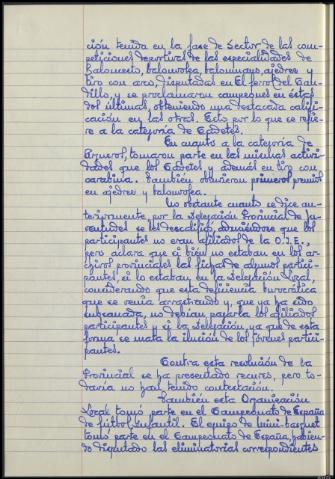 ción tenida en la fase de Sector de las com-
peticiones deportivas de las especialidades de
baloncesto, balonvolea, balonmano, ajedrez y
tiro con arco, disputadas en El Ferrol del Cau-
dillo, y se proclamaron campeones en estas
dos últimas, obteniendo una destacada califi-
cación en las otras. Esto por lo que se refie-
re a la categoría de Cadetes.
En cuanto a la categoría de
Arqueros, tomaron parte en las mismas activi-
dades que los Cadetes y además en tiro con
carabina. También obtuvieron primeros premios
en ajedrez y balonvolea.
No obstante cuanto se dice an-
teriormente por la Delegación Provincial de Ju-
ventudes se les descalificó, aduciéndose que los
participantes no eran afiliados de la O.J.E.,
pero aclara que si bien no estaban en los ar-
chivos provinciales las fichas de algunos partici-
pantes, sí lo estaban en la Delegación Local
considerando que esta deficiencia burocrática
que se venía arrastrando y, que ya ha sido
subsanada, no debían pagarla los afiliados
participantes y sí la Delegación, ya que de esta
forma se mata la ilusión de los jóvenes partici-
pantes.
Contra esta resolución de la
Provincial se ha presentado recurso, pero to-
davía no han tenido contestación.
También esta Organización
Local tomó parte en el Campeonato de España
de fútbol infantil. El equipo de mini-basquet
tomó parte en el Campeonato de España, habien-
do disputado las eliminatorias correspondientes